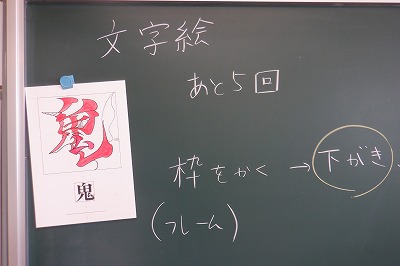 文字絵
あと5回
鬼
鬼
枠をかく → 下がき
(フレーム)